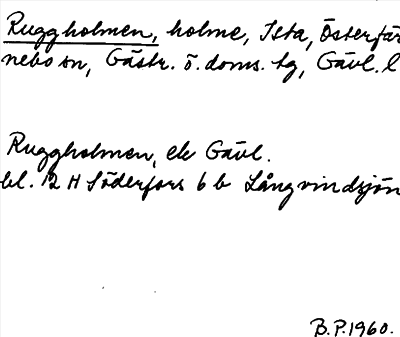 Ruggholmen, holme, Ista, Österfär
nebo sn, Gästr. ö. doms. tg, Gävl. l
Ruggholmen, ek Gävl.
bl. 12 H Söderfors 6 b Långvindsjön
B.P. 1960.